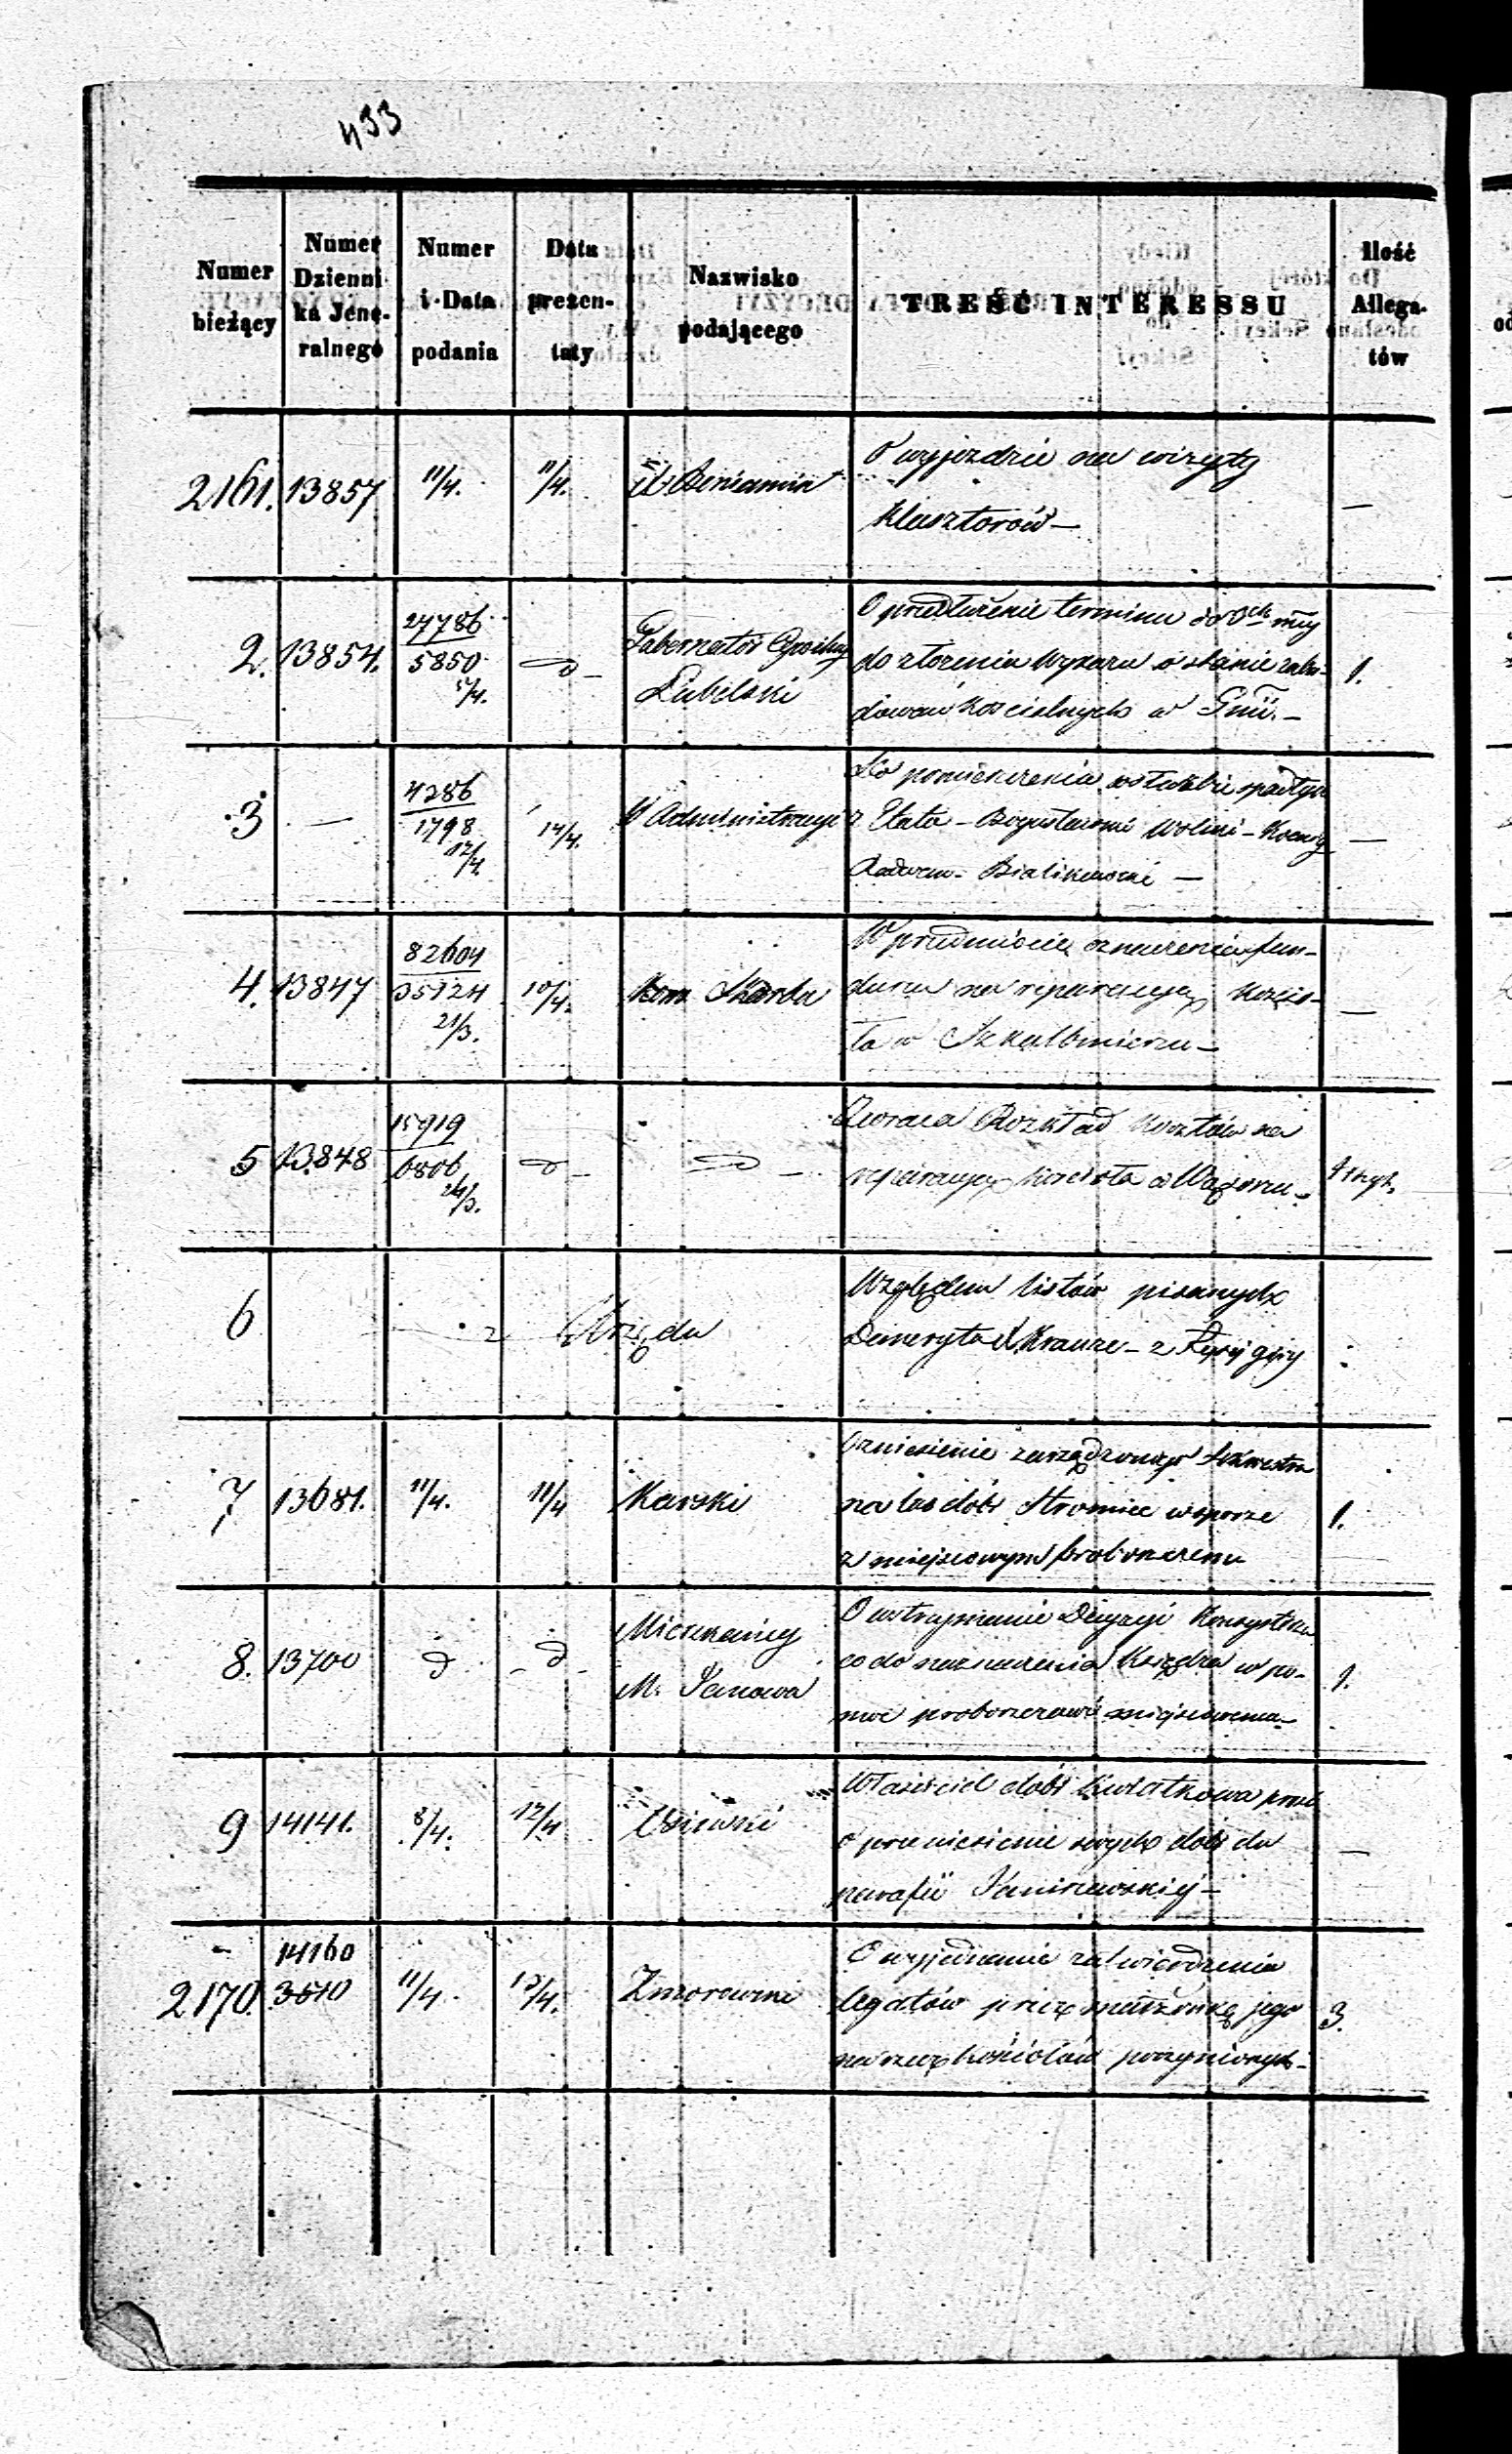 433
Numer bieżący
Numer Dziennika Jeneralnego
Numer i Data podania
Data prezentaty
Nazwisko podającego
TREŚĆ INTERESSU
Ilość Allegatów
2161. 13857 11/4. 11/4. X. Beniamin O wyjezdzie na wizyty
Klasztorów — —
2. 13854. 27786 5850 5/4. D — Gubernator Cywilny Lubelski O przedłużenie terminu do
do złożenia wykazu o stanie zabu-
dowań kościelnych w Gnii. — 1.
3 — 4286 1798 12/4. 14/4. W Administracyi
z Etatu — Wolski —
— —
4. 13847 82604 35124 21/3. 10/4. Kom. Skarbu W przedmiocie oznaczenia fun-
duszu na reparacyę Kościo-
ła w Szkalbmierzu — —
5 13848 15919 6806 24/3. D — D — Zwraca Rozkład kosztów na
reparacyę kościoła w
6 z Urzędu Względem listów pisanych
Demeryta X. Krauze — z Łysej góry
7 13681. 11/4. 11/4 Karski O zniesienie zarządzonego sekwestru
na las dóbr Stromiec w sporze
z miejscowym proboszczem 1.
8. 13700 D D Mieszkańcy M. Janowa O wstrzymanie Decyzyi Konsystorza
co do naznaczenia Księdza w po-
moc proboszczowi miejscowemu — 1.
9 14141. 8/4. 12/4 Właściciel dóbr Kwiatkowa prosi
o przeniesienie swych dóbr do
parafii Janiszewskiej — —
2170. 14160 3610 11/4. 12/4. O wyjednanie zatwierdzenia
legatów przez małżonkę jego
na rzecz kościołów poczynionych — 3.